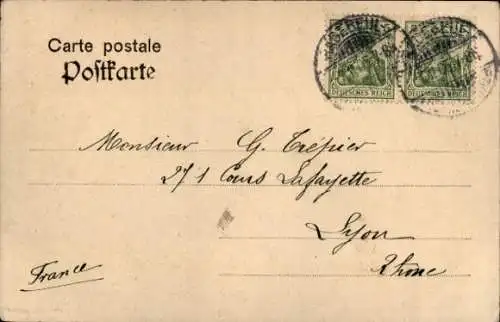 Carte postale
Postkarte
DEUTSCHES REICH
DEUTSCHES REICH
Monsieur G. Trépier
271 Cours Lafayette
Lyon
Rhône
France